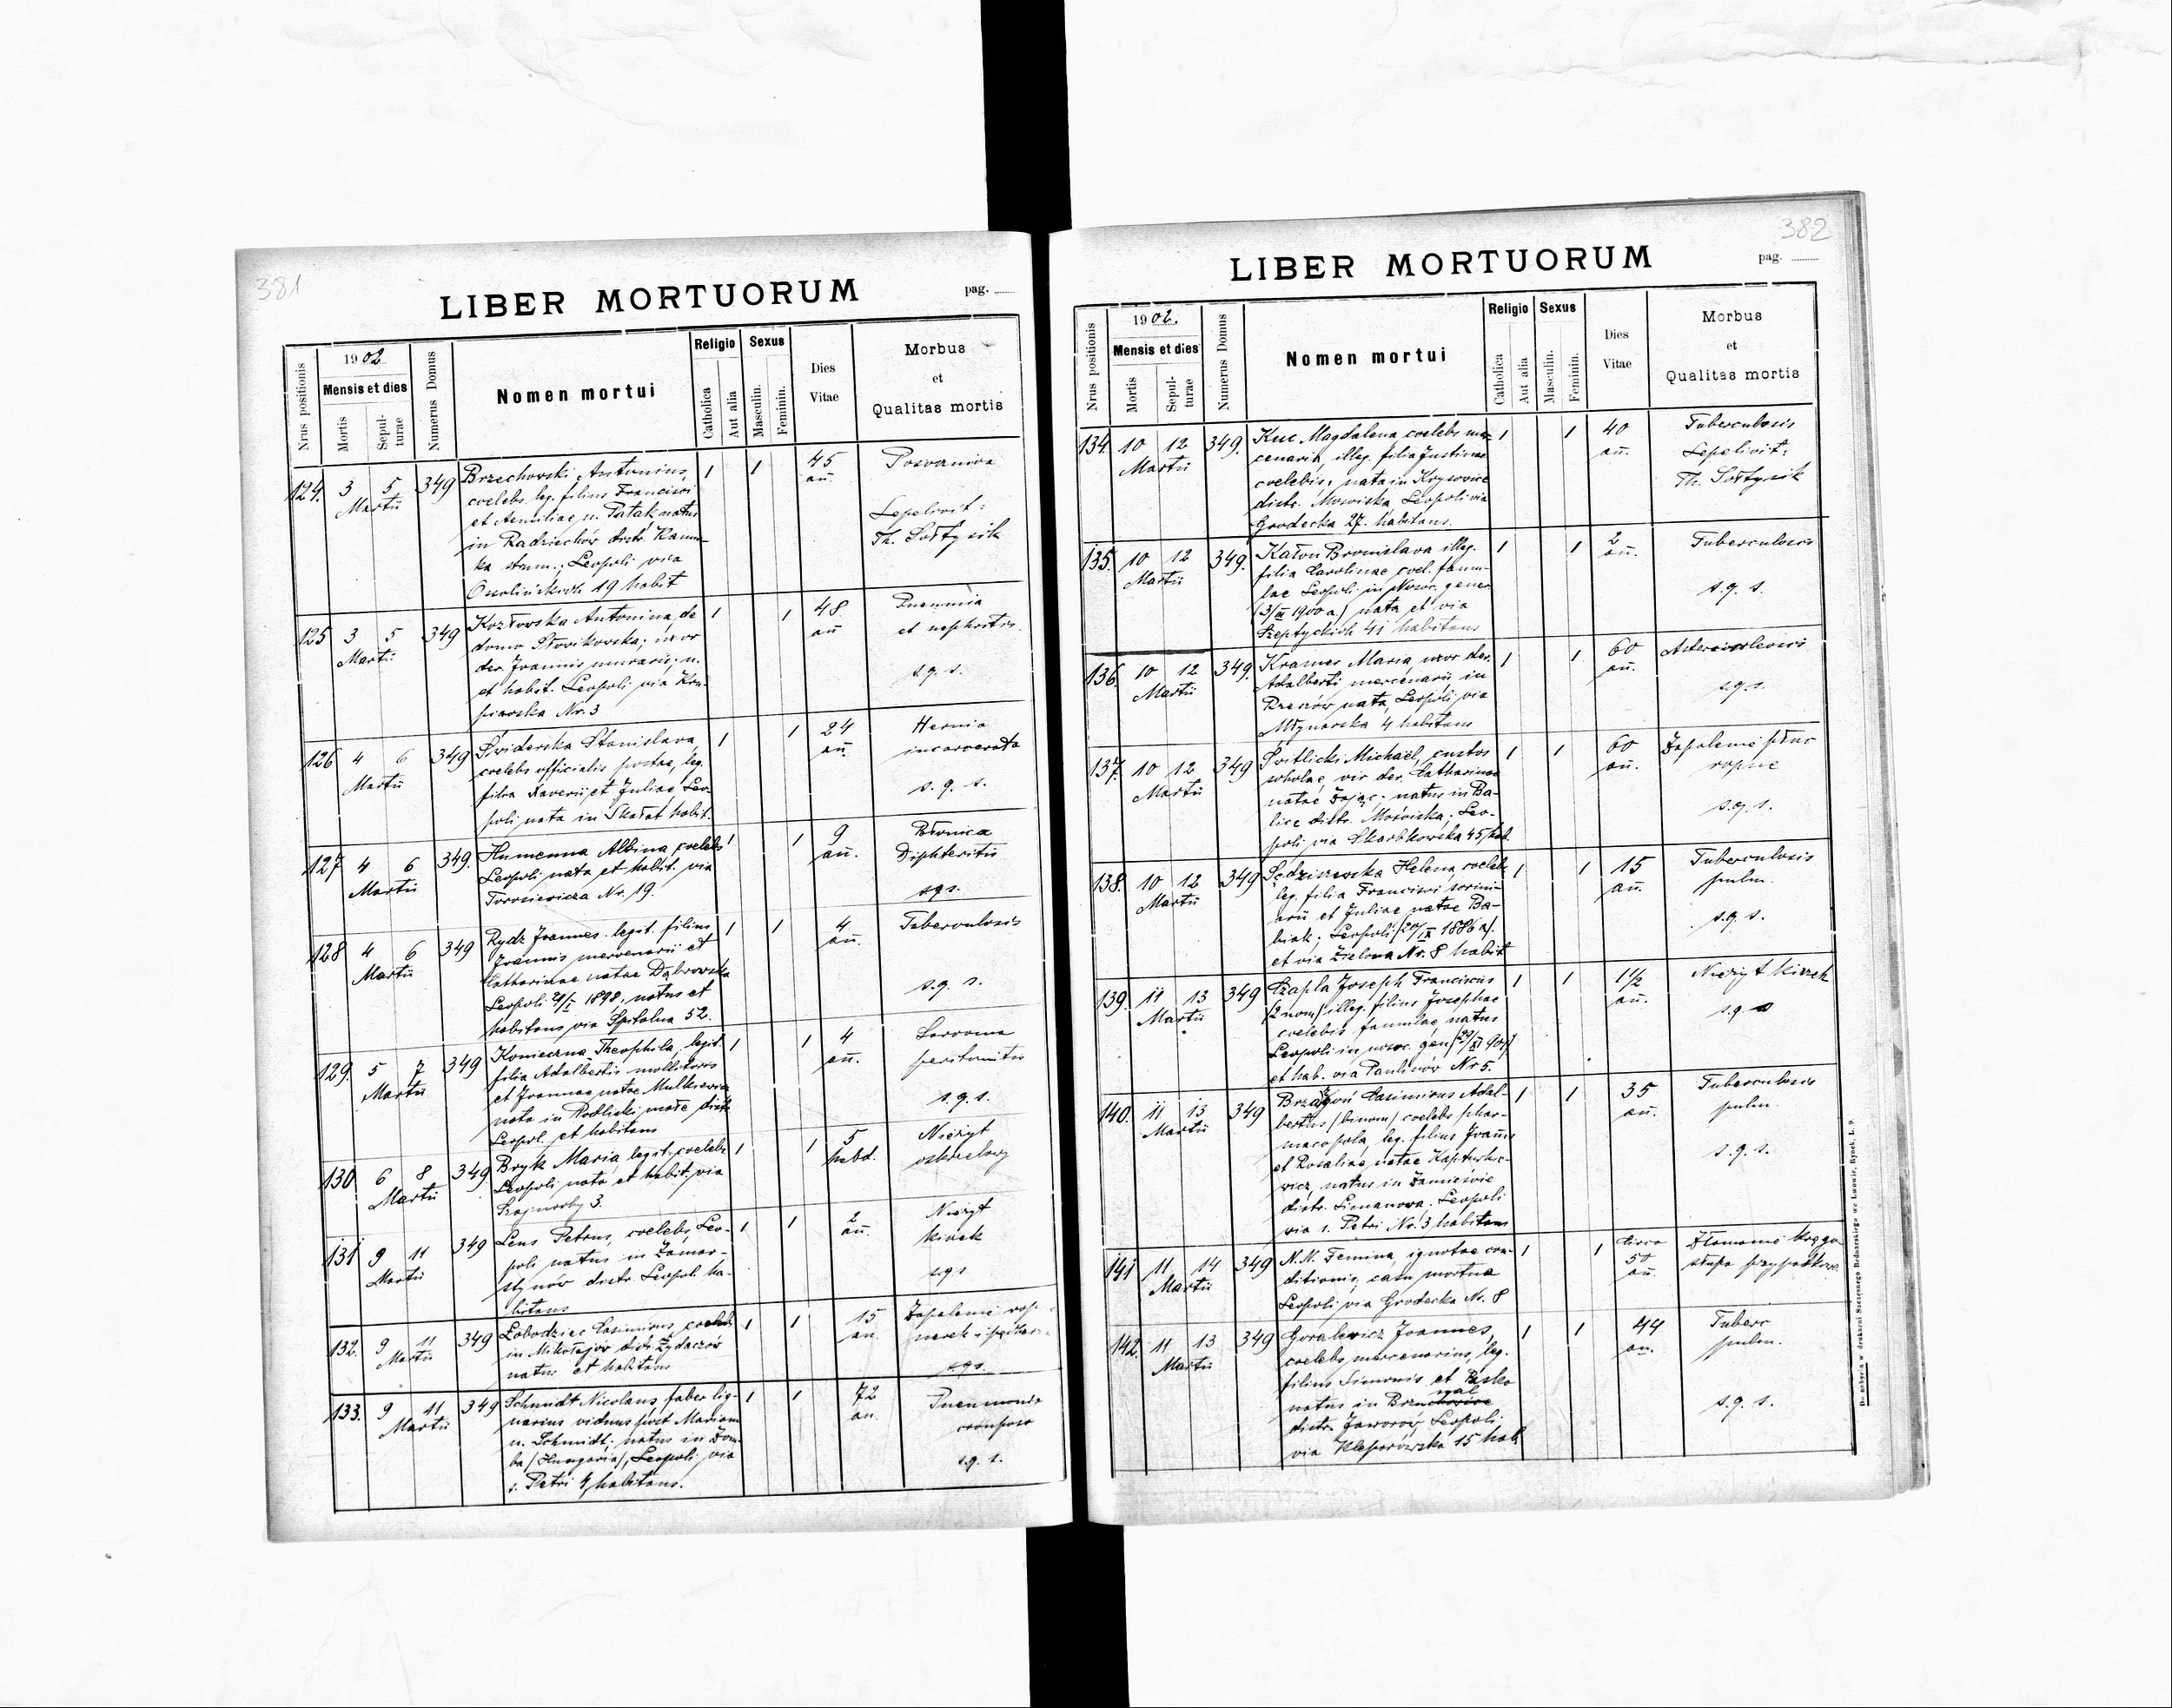 381
LIBER MORTUORUM
pag.
Nrus positionis
1902
Mensis et dies
Mortis
Sepulturae
Numerus Domus
Nomen mortui
Religio
Catholica
Aut alia
Sexus
Masculin.
Feminin.
Dies
Vitae
Morbus
et
Qualitas mortis
124. 3 5 Martii 349 Brzechowski Antonius, 1 1 45 an.
coelebs leg. filius Francisci
et Aemiliae n. Patak natus
in Radziechów distr. Kamion-
ka strum.; Leopoli via
Ossolińskich 19 habit
Sepelivit:
Th. Sołtysik
125 3 5 Martii 349 Kozłowska Antonina, de 1 1 48 an
domo Słowikowska; uxor
der. Joannis murarii; n.
et habit. Leopoli via Kra-
Nr. 3
et nephritis
s. g. s.
126 4 6 Martii 349 Świderska Stanislava, 1 1 24 an. Hernia
coelebs officialis postae, leg. incarcerata
filia Xaverii et Juliae, Leo-
poli nata in Skałat habit. s. g. s.
127 4 6 Martii 349. Humenna Albina coelebs 1 1 9 an. Błonica
Leopoli nata et habit. via Diphteritis
Torosiewicza Nr. 19. s. g. s.
128 4 6 Martii 349 Rydz Joannes legit. filius 1 1 4 an. Tuberculosis
Joannis mercenarii et
Catharinae natae Dąbrowska
Leopoli 1898, natus et s. g. s.
habitans via Szpitalna 52.
129. 5 7 Martii 349 Konieczna Theophila, legit. 1 1 4 an. Sarcoma
filia Adalberti molitoris peritonitis
et Joannae natae
nata in Podliski małe distr. s. g. s.
Leopol. et habitans
130 6 8 Martii 349 Bryk Maria legit. coelebs 1 1 5 hebd. Nieżyt
Leopoli nata et habit. via oskrzelowy
Szajnochy 3.
131 9 11 Martii 349 Lens Petrus, coelebs, Leo- 1 1 2 an. Nieżyt
poli natus in Zamar- kiszek
stynów distr. Leopol. ha- s. g. s
bitans
132. 9 11 Martii 349 Łobodziec Casimirus, coelebs 1 1 15 an. Zapalenie rop.
in Mikołajów distr. Żydaczów nerek i
natus et habitans s. g. s.
133. 9 11 Martii 349 Schmidt Nicolaus, faber lig- 1 1 72 an. Pneumonia
narius viduus post Mariam crouposa
n. Schmidt; natus in Zom-
ba (Hungaria), Leopoli, via s. g. s.
s. Petri 4, habitans.
382
LIBER MORTUORUM
pag.
Nrus positionis
1902.
Mensis et dies
Mortis
Sepulturae
Numerus Domus
Nomen mortui
Religio
Catholica
Aut alia
Sexus
Masculin.
Feminin.
Dies
Vitae
Morbus
et
Qualitas mortis
134. 10 12 Martii 349. Kuc Magdalena coelebs mer- 1 1 40 an. Tuberculosis
cenaria, illeg. filia Justinae Sepelivit:
coelebis, nata in Krysowice Th. Sołtysik
distr. Mościska, Leopoli via
Grodecka 27. habitans.
135. 10 12 Martii 349. Kałon Bronislava illeg. 1 1 2 an. Tuberculosis
filia Carolinae coel. famu-
lae Leopoli in Nosoc. gener. s. g. s.
1900 a.) nata et via
Szeptyckich 41 habitans
136. 10 12 Martii 349. Kramer Maria, uxor der. 1 1 60 an.
Adalberti mercenarii in
Rzeszów nata, Leopoli via s. g. s.
Młynarska 4 habitans
137. 10 12 Martii 349 Świtlicki Michaël, custos 1 1 60 an. Zapalenie płuc
scholae, vir der. Catharinae ropne
natae Zając; natus in Ba-
lice distr. Mościska; Leo- s. g. s.
poli via Skarbkowska 45, hab.
138. 10 12 Martii 349 Sędziszewska Helena, coelebs 1 1 15 an. Tuberculosis
leg. filia Francisci pulm.
et Juliae natae Ba-
biak; Leopoli (20/IX 1886 a). s. g. s.
et via Zielona Nr. 8 habit
139. 11 13 Martii 349 Czapla Joseph Franciscus 1 1 1 1/2 an. Nieżyt kiszek
(2 nom) illeg. filius Josephae
coelebis famulae, natus s. g. s
Leopoli in nosoc. gen.
et hab. via Paulinów Nr 5.
140. 11 13 Martii 349 Casimirus Adal- 1 1 35 an. Tuberculosis
bertus (binom) coelebs phar- pulm.
macopola, leg. filius Joannis
et Rosaliae natae Kapturkie- s. g. s.
wicz, natus in
distr. Limanowa. Leopoli
via s. Petri Nr. 3 habitans
141 11 14 Martii 349 N.N. Femina, ignotae con- 1 1 circa 50 an. Złamanie kręgo-
ditionis, casu mortua słupa przypadkowe
Leopoli via Grodecka Nr. 8
142. 11 13 Martii 349 Goralewicz Joannes, 1 1 44 an. Tuberc
coelebs mercenarius, leg. pulm.
filius Simonis et
natus in
distr. Jaworów, Leopoli s. g. s.
via Kleparowska 15 hab.
Do nabycia w drukarni Szczęsnego Bednarskiego we Lwowie, Rynek, L. 9.